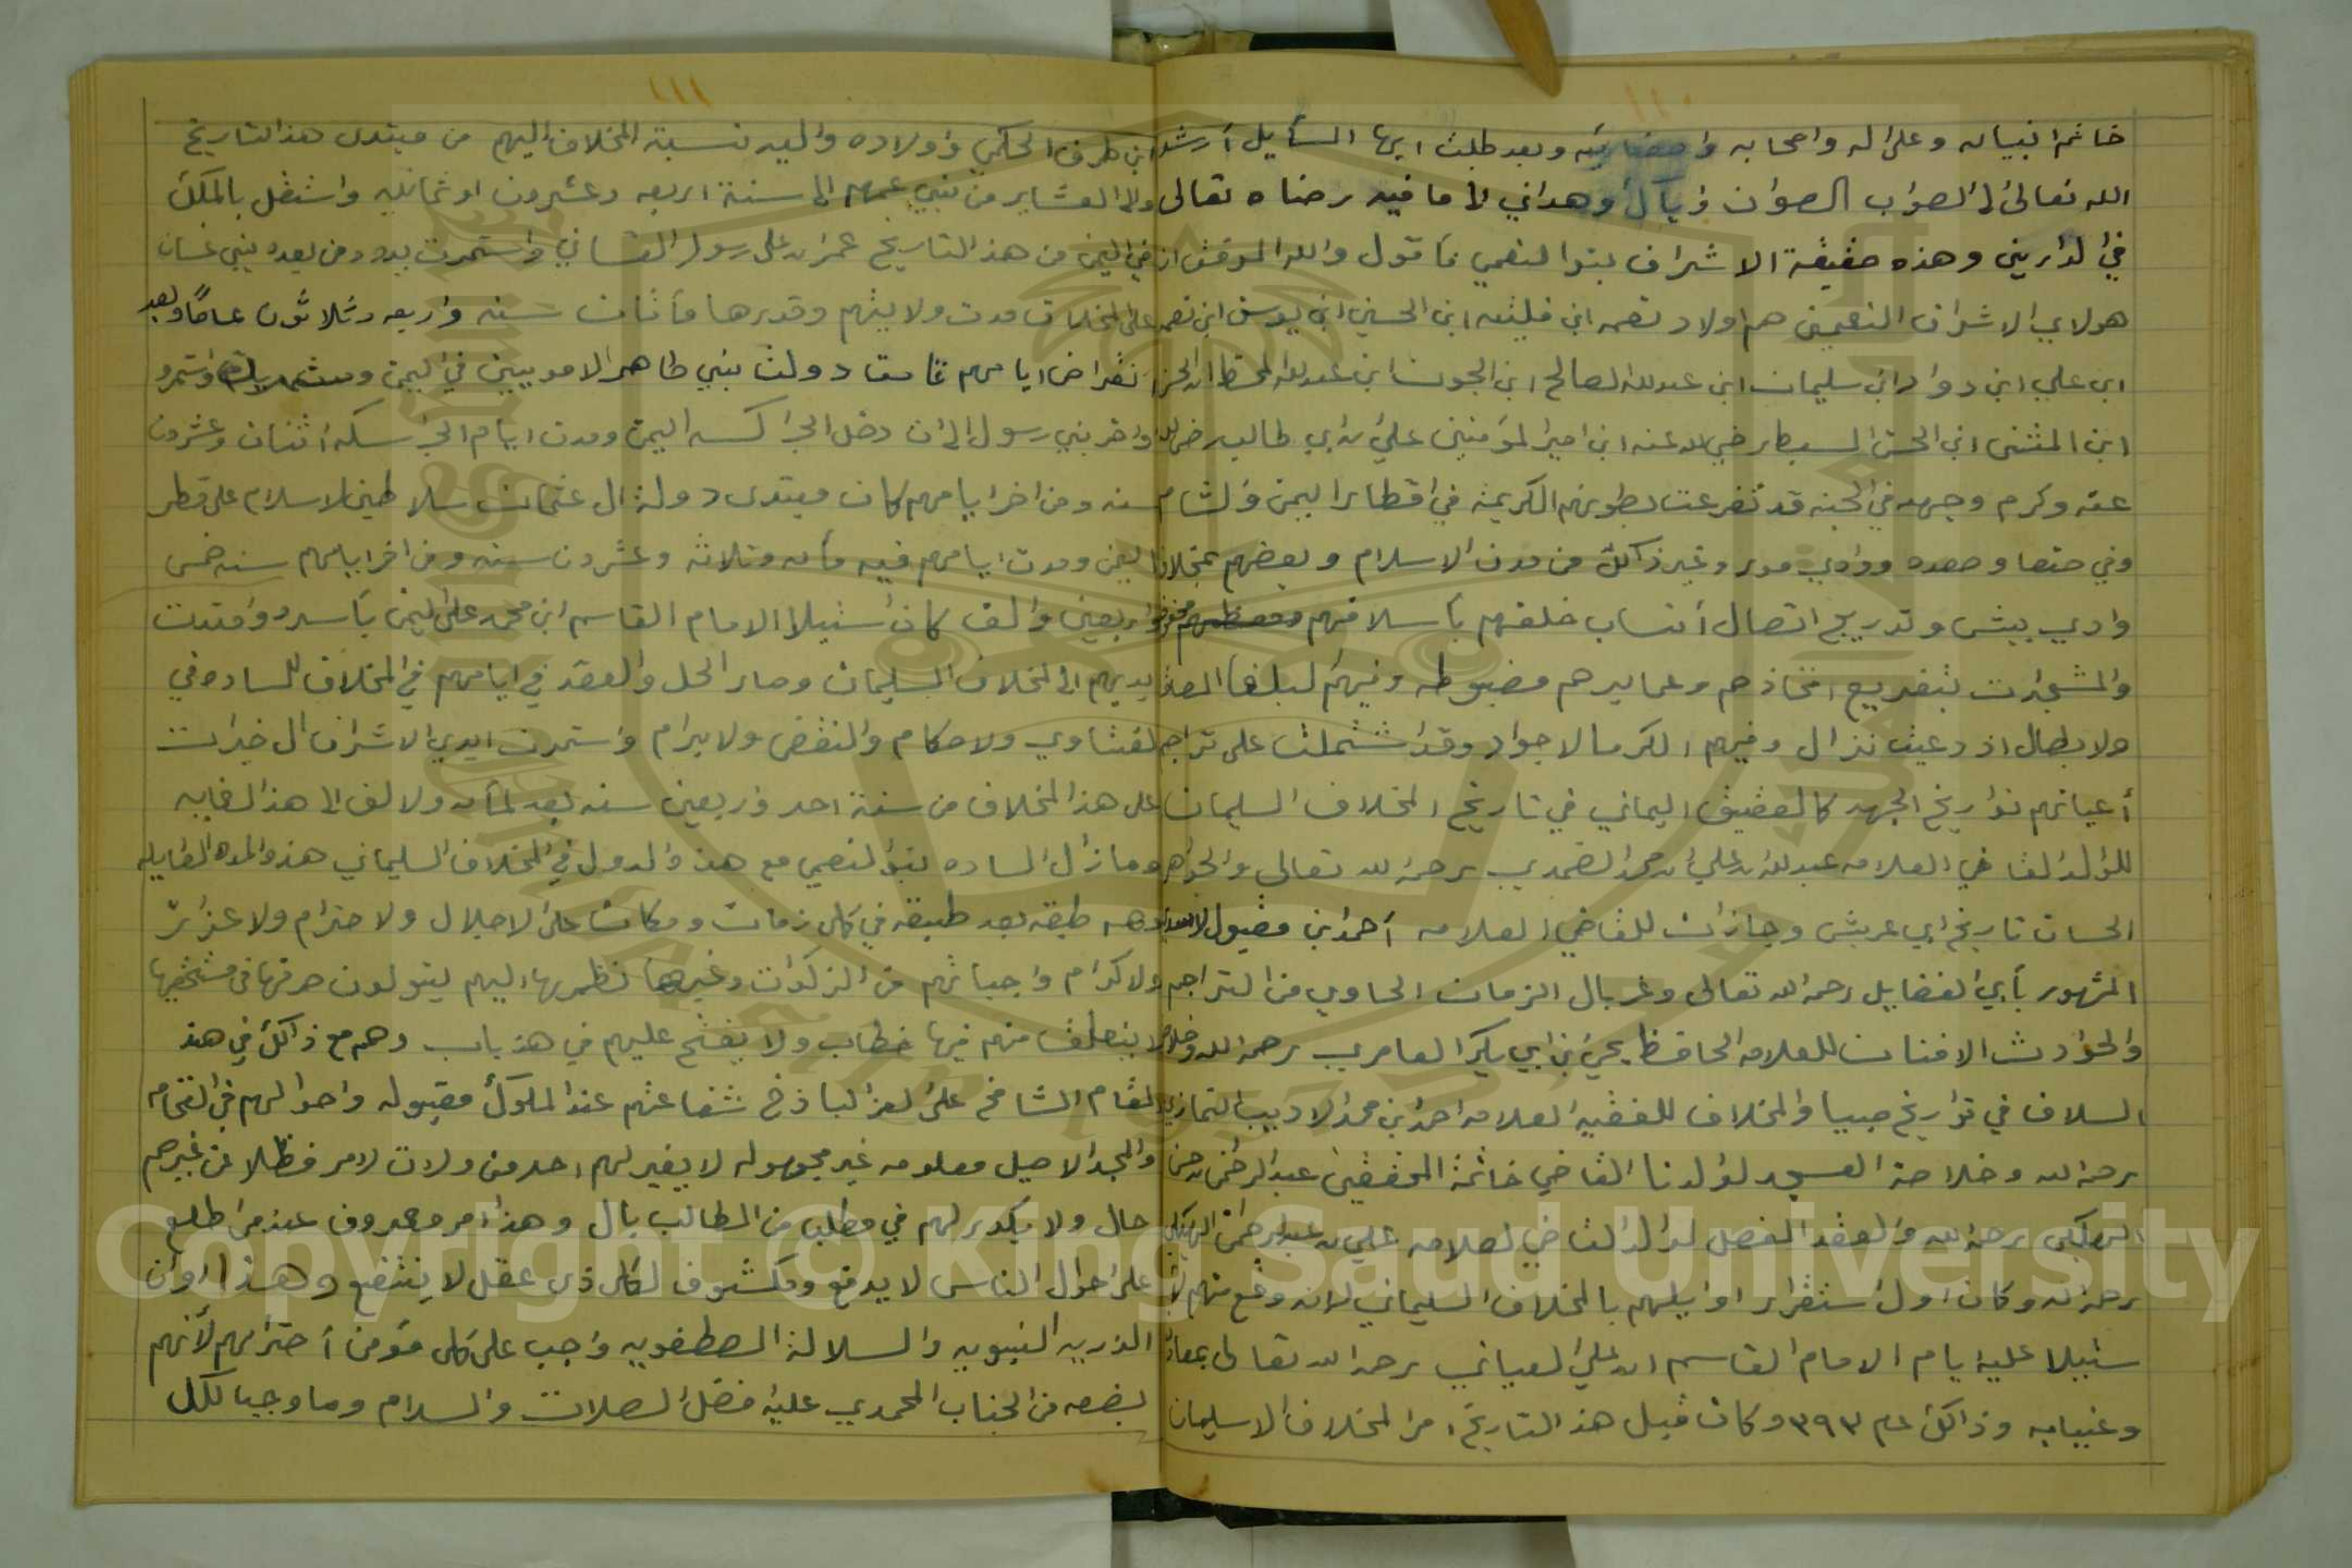 ١١٠
خاثم انبياه وعلى اله واصحابه وبعد طلبت ايها السأيل أرشد
الله تعالى الى الصواب الصوان وهداني لأ ما فيه رضاه تعالى
في الدارين وهذه حقيقة الاشراف بنوا لنعمي فأقول والله الموفق ان
هولاي الاشراف النعميين هم اولاد نعمه ابن فليثه ابن الحسين ابن يوسف ابن نعمه
ابن علي ابن دوا دابن سليمان ابن عبدلله الصالح ابن الجون ابن عبدلله المحظ ابن الحسن
ابن المثنى ابن الحسن السبط رضي الله عنه ابن امير المؤمنين علي بن ابي طالب رضي الله
عنه وكرم وجهه في الجنه قد تفرعت بطونهم الكريمة في اقطار اليمن والشام
وفي صنعا وصعده ووادي مور وغير ذاكك من مدن الاسلام وبعضهم بمخلاف
وادي بيش وتدريج اتصال أنساب خلفهم بأسلافهم
والمشجرات بتفريع افخاذهم وعمايرهم مضبوطه وفيهم لبلغا
ولابطال اذ دعيت نزال وفيهم الكرما لاجواد وقد اشتملت على تراجم
أعيانهم تواريخ الجهه كالعقيق اليماني في تاريخ المخلاف السليمان
للوالد القاضي العلامه عبدلله بن علي ابن محمد الضمدي رحمة الله تعالى والجواهر
الحسان تاريخ ابي عريش وجازان للقاضي العلامه أحمد ابن مقبول الاسدي
المشهور بأبي الفضايل رحمه الله تعالى وغربال الزمان الحاوي من التراجم
والحوادث الافنان للعلامه الحافظ يحي ابن ابي بكر العامري رحمه الله وخلاصة
السلاف في تواريخ صبيا والمخلاف للفقيه العلامه احمد ابن محمد الاديب التمازي
رحمه الله وخلاصة العسجد لوالدنا القاضي خاتمة المحققين عبدالرحمن بن حسن
البهكلي رحمة الله والعقد المفصل لوالد القاضي لعلامه علي بن عبدالرحمن البهكلي
رحمة الله وكان اول استقرار اوايلهم بالمخلاف السليماني لانه وقع منهم
ستيلا عليه ايام الامام القاسم ابن علي العياني رحمه الله تعالى
وغيبابه وذاكك عام ٣٩٣ وكان قبل هذ التاريخ امر المخلاف الاسليمان
١١١
ابن طرف الحكمي واولاده واليه نسبة المخلاف اليهم من مبتدى هذ التاريخ
ولا العشاير من بني عمهم الى سنة اربعه وعشرون او ثمانيه واشتغل بالملكك
في اليمن من هذ التاريخ عمر ابن علي رسول الغساني واستمرت بيده ومن بعده بني غسان
على المخلاف مدت ولايتهم وقدرها مأتان سنه واربعه وثلاثون عامًا وبعد
نقراض ايامهم قامت دولت بني طاهر الامويين في اليمن واستمرو
واخر بني رسول الى ان دخل الجراكسه اليمن ومدت ايام الجراسكه اثنان وعشرون
سنه ومن اخر ايامهم كان مبتدى دولة ال عثمان سلاطين لاسلام على قطر
اليمن ومدت ايامهم فيه مأه وثلاثه وعشرون سنه ومن اخر ايامهم سنه خمس
واربعين والف كان استيلا الامام القاسم ابن محمد على اليمن بأسره وامتدت
يديهم الى المخلاف السليمان وصار الحل والعقد في ايامهم في المخلاف للساده في
لفتاوي ولاحكام والنقض ولابرام واستمرت ايدي الاشراف ال خيرات
على هذ المخلاف من سنة احد واربعين سنه بعد لمأه ولالف الى هذ الغايه
وما زال الساده بنوالنعمي مع هذ والدول في المخلاف السليماني هذ والمده القايله
وهم طبقه بعد طبقه في كل زمان ومكان على الاجلال ولاحترام ولاعزاز
ولاكرام واجباتهم من الزكوات وغيرها نظرها اليهم يتولون صرفها في مستحقيها
لا يتعلق منهم فيها خطاب ولا يفتح عليهم في هذ باب وهم مع ذاكك في هذ
لمقام الشامخ على العز الباذخ شفاعتهم عند الملوكك مقبوله واحوالهم في الفخامه
والمجد الاصيل معلومه غير مجهوله لا يغير لهم احد من ولات لامر فظلا عن غيرهم
حال ولا يكدر لهم في مطلب من المطالب بال وهذ امر معروف عند من اطلع
على احوال الناس لا يدفع ومكشوف لكل ذى عقل لا ينتفع وهذا اوان
الذريه النبويه والسلالة المصطفويه واجب على كل مؤمن أحترامهم لأنهم
بضعه من الجناب المحمدي عليه افضل الصلات والسلام وما وجبا لكل
Copyright © King Saud University